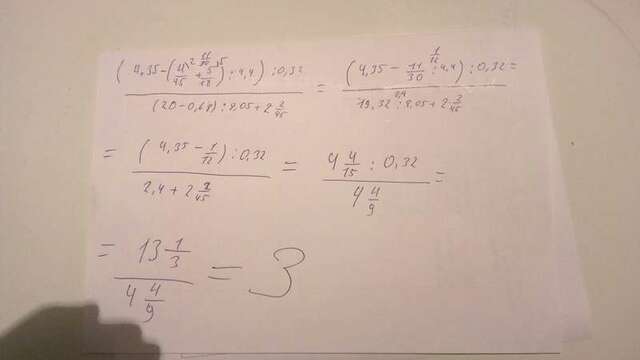 ( 4,35 - ( 4/45 + 5/18 ) : 4,4 ) : 0,32 / (20 - 0,68) : 8,05 + 2 2/45 = ( 4,35 - 11/30 : 4,4 ) : 0,32 / 19,32 : 8,05 + 2 2/45 =
= ( 4,35 - 1/12 ) : 0,32 / 2,4 + 2 2/45 = 4 4/15 : 0,32 / 4 4/9 =
= 13 1/3 / 4 4/9 = 3